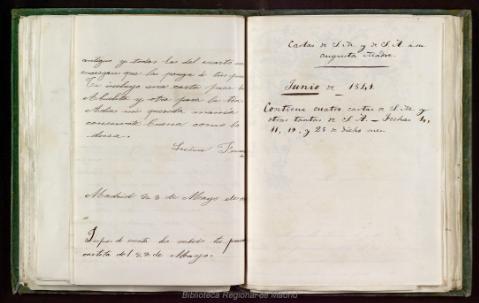 amigas y todas las del cuarto me
encargan que las ponga á tus pies
Te incluyo una carta para la
Abuelita y otra para la
Adios mi querida mamá
consérvate buena como lo
desea.
Luisa Fernanda
Madrid 23 de Mayo de
de mi cuarto he recibido tu
cartita del 22 de Mayo.
Cartas de S. M. y de S. A. a su
augusta Madre.
Junio de 1841.
Contiene cuatro cartas de S. M. y
otras tantas de S. A. – Fechas 4,
11, 19, y 25 de dicho mes.
Biblioteca Regional de Madrid